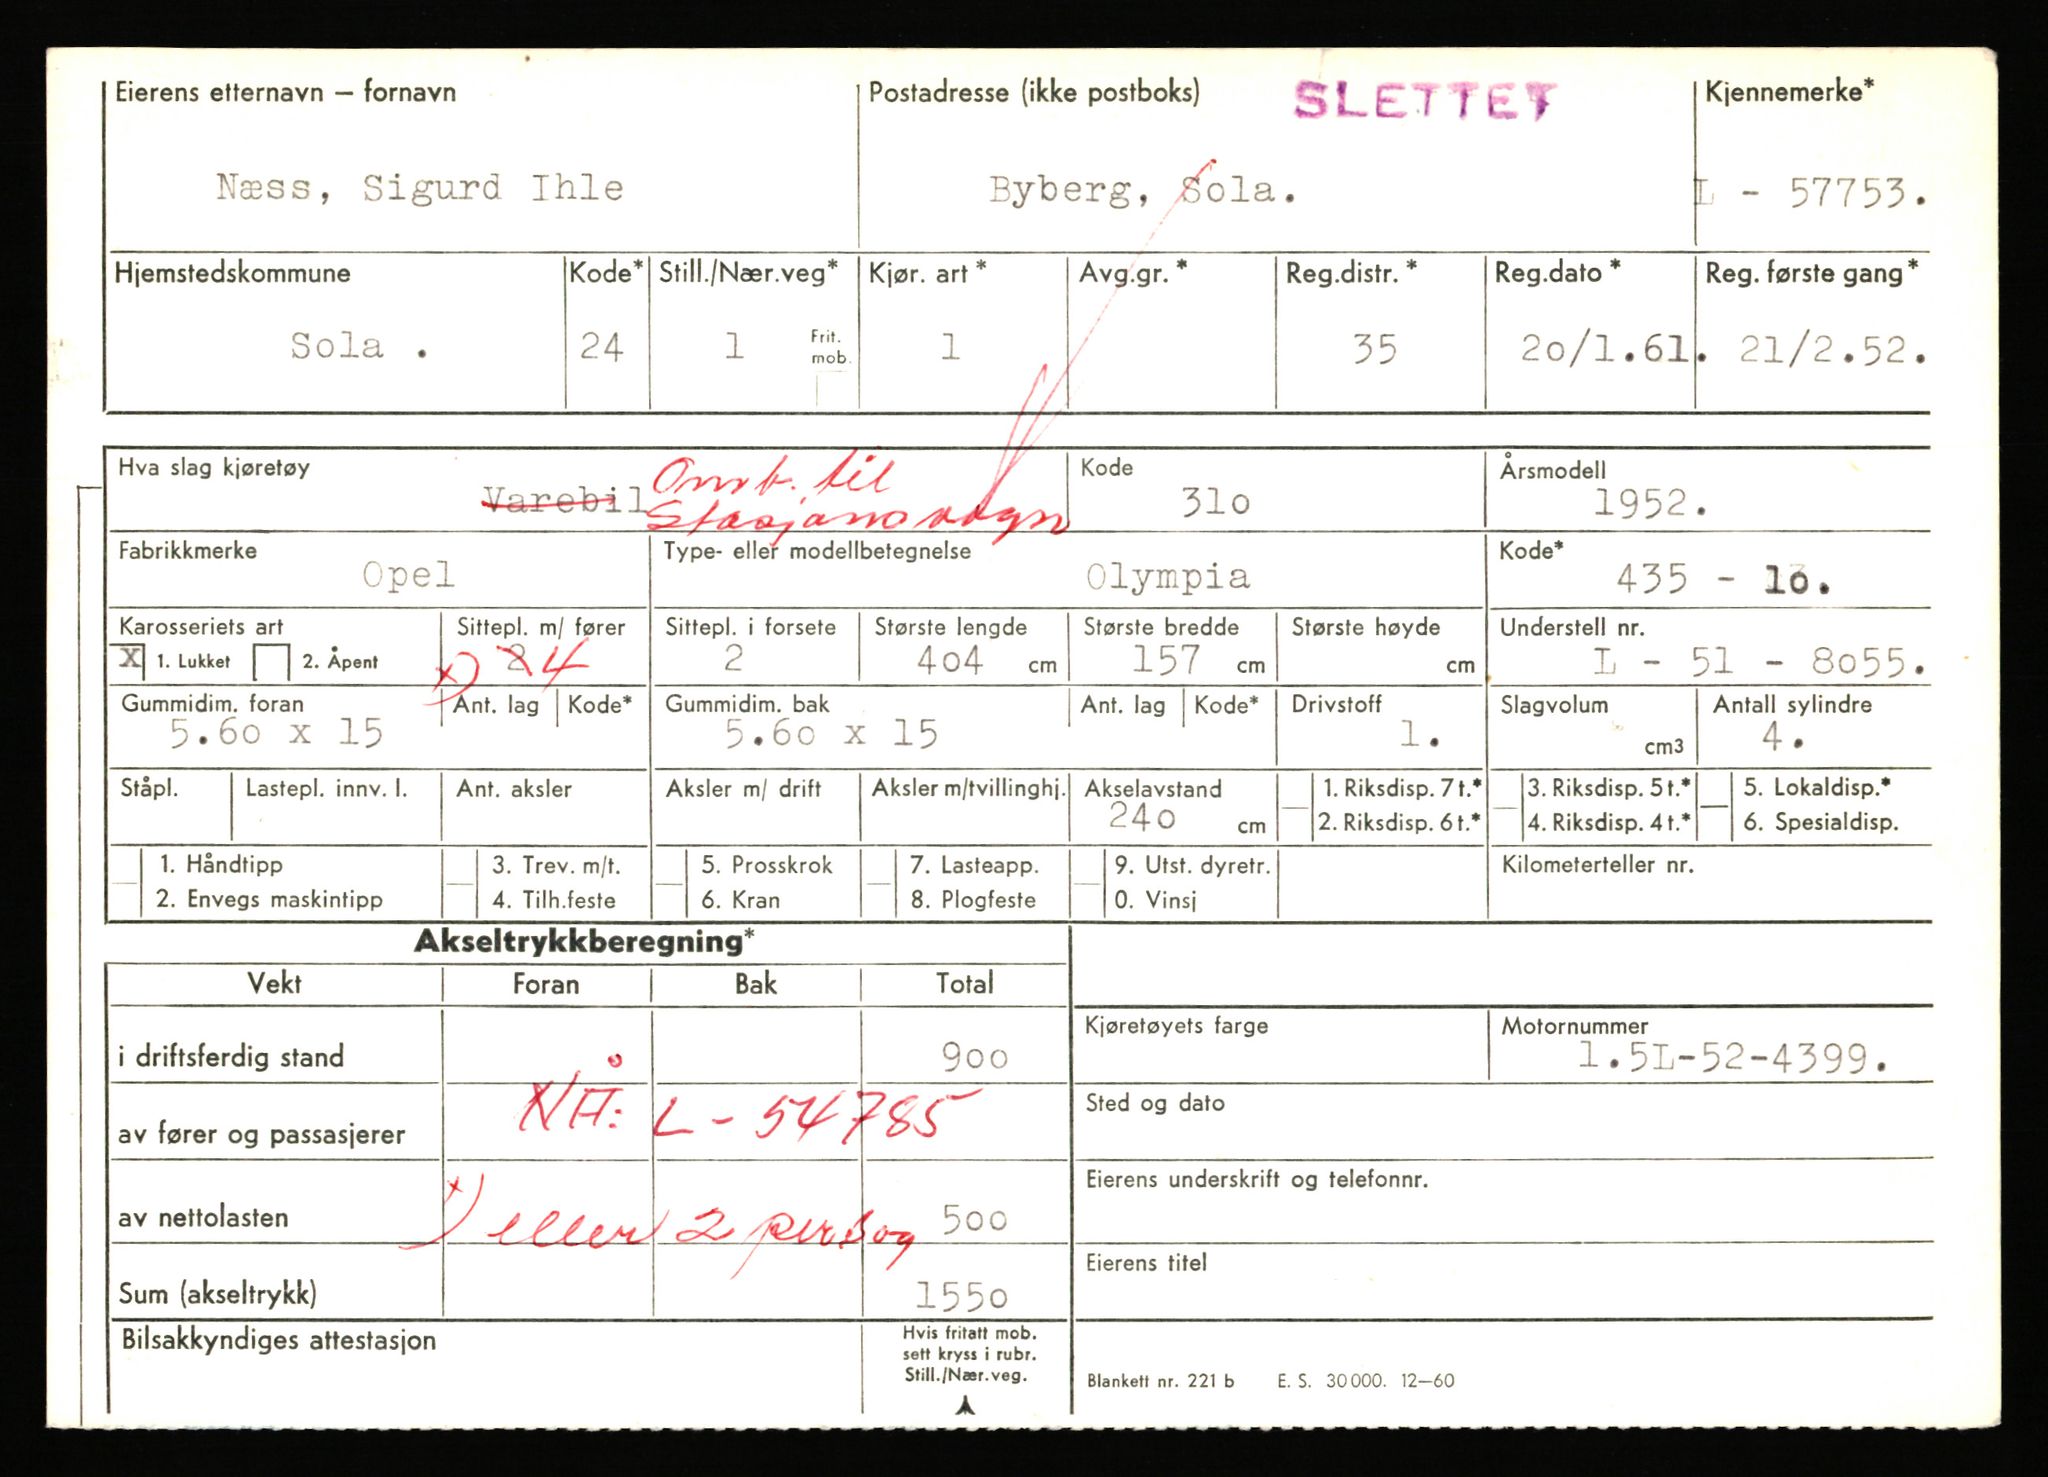 Eierens etternavn – fornavn Postadresse (ikke postboks) SLETTET Kjennemerke*
Næss, Sigurd Ihle Byberg, Sola. L - 57753.
Hjemstedskommune Kode* Still./Nær.veg* Kjør. art* Avg.gr.* Reg.distr.* Reg.dato* Reg. første gang*
Sola . 24 1 Frit. mob. 1 35 20/1.61. 21/2.52.
Hva slag kjøretøy Kode Årsmodell
Varebil Omb. til 310 1952.
Stasjonsvogn
Fabrikkmerke Type- eller modellbetegnelse Kode*
Opel Olympia 435 - 10.
Karosseriets art Sittepl. m/ fører Sittepl. i forsete Største lengde Største bredde Største høyde Understell nr.
X 1. Lukket 2. Åpent x) 2 4 2 404 cm 157 cm cm L - 51 - 8055.
Gummidim. foran Ant. lag Kode* Gummidim. bak Ant. lag Kode* Drivstoff Slagvolum Antall sylindre
5.60 x 15 5.60 x 15 1. cm3 4.
Ståpl. Lastepl. innv. l. Ant. aksler Aksler m/ drift Aksler m/tvillinghj. Akselavstand 1. Riksdisp. 7 t.* 3. Riksdisp. 5 t.* 5. Lokaldisp.*
240 cm 2. Riksdisp. 6 t.* 4. Riksdisp. 4 t.* 6. Spesialdisp.
1. Håndtipp 3. Trev. m/t. 5. Prosskrok 7. Lasteapp. 9. Utst. dyretr. Kilometerteller nr.
2. Envegs maskintipp 4. Tilh.feste 6. Kran 8. Plogfeste 0. Vinsj
Akseltrykkberegning*
Vekt Foran Bak Total
Kjøretøyets farge Motornummer
i driftsferdig stand 900 1.5L-52-4399.
NÅ: L - 54785
Sted og dato
av fører og passasjerer
Eierens underskrift og telefonnr.
av nettolasten x) eller 2 pers og 500
Eierens titel
Sum (akseltrykk) 1550
Bilsakkyndiges attestasjon Hvis fritatt mob.
sett kryss i rubr.
Still./Nær.veg.
Blankett nr. 221 b E. S. 30 000. 12–60